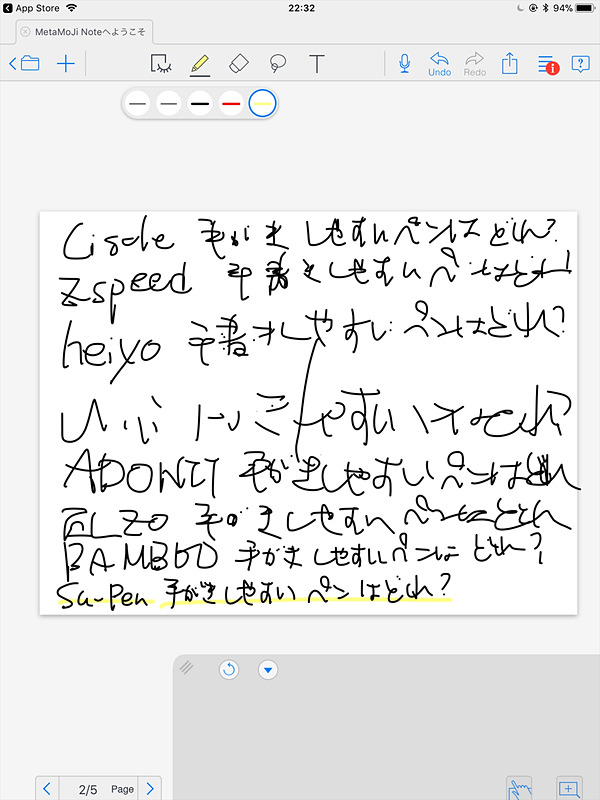 App Store 22:32 94%
MetaMoJi Noteへようこそ
T Undo Redo
Cisdle 手がき しやすいペンはどれ?
Zspeed 手書きしやすいペンはどれ!
heiyo 手書きしやすい ペンはどれ?
やすい
ADONIT 手がきしやすいペンはどれ
ELZO 手がきしやすいペンはどれ
BAMBOO 手がきしやすいペンは どれ?
Su-Pen 手がきしやすい ペンはどれ?
2/5 Page